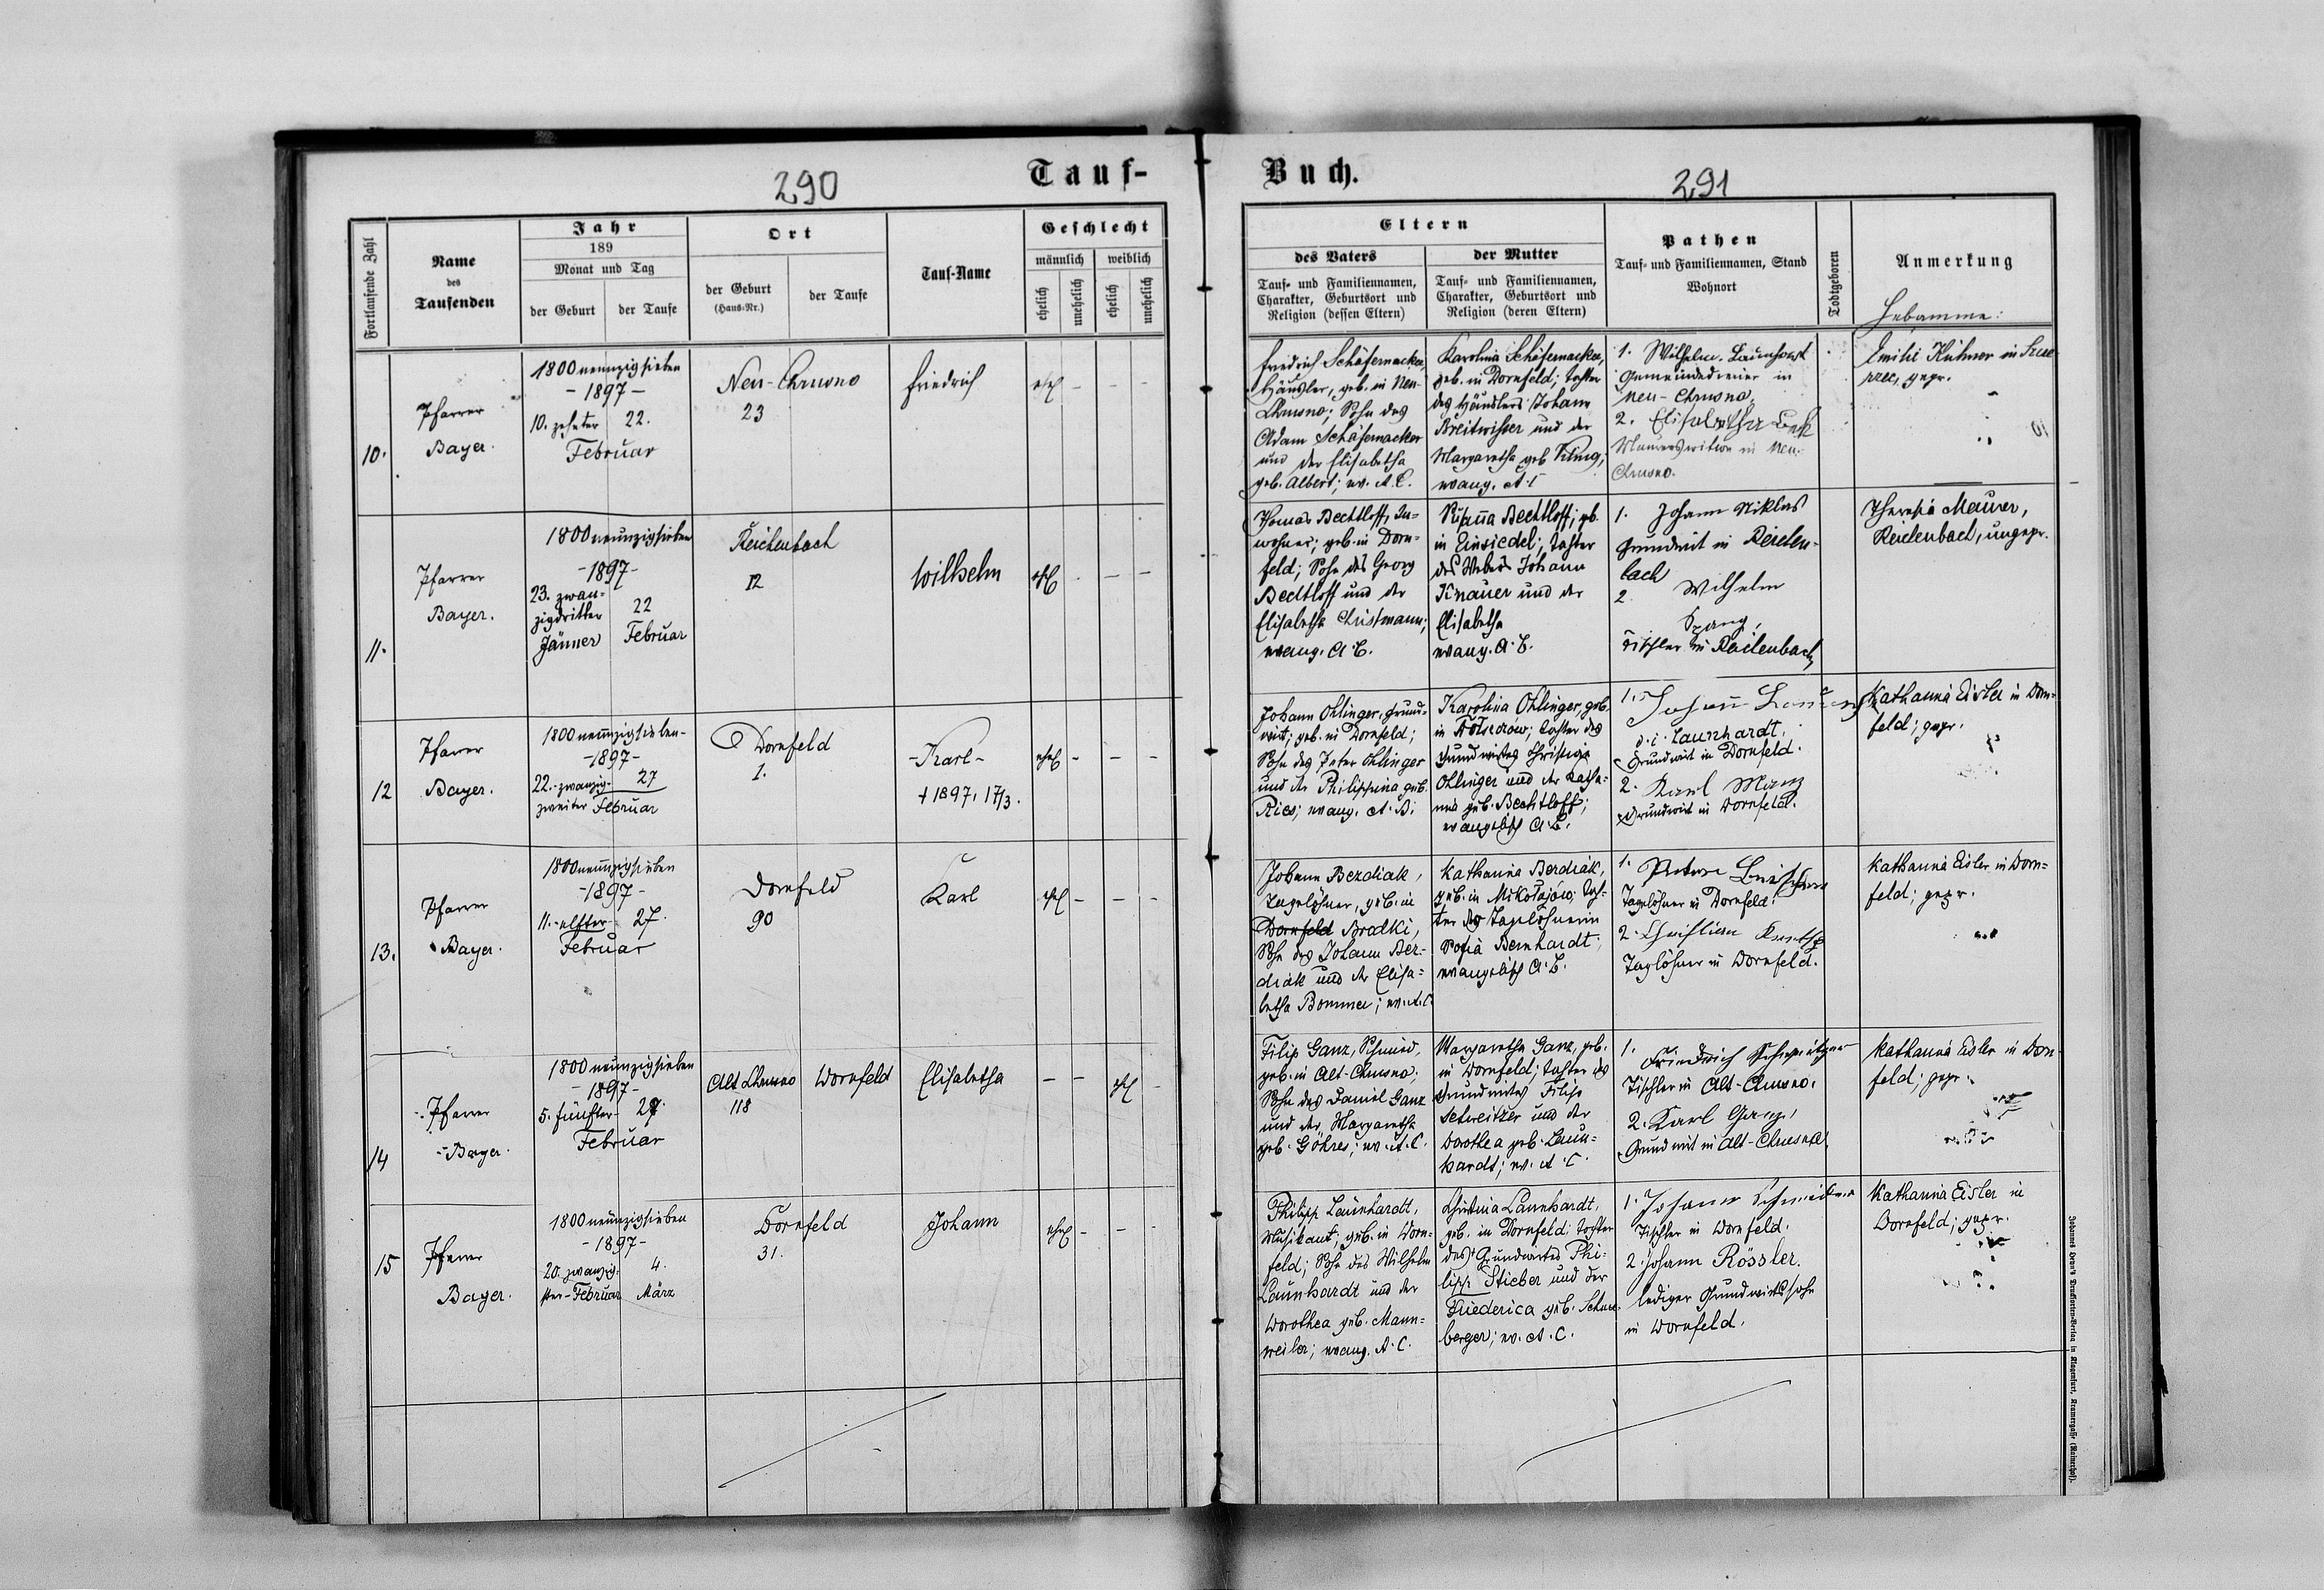 290
Tauf-
Fortlaufende Zahl
Name
des
Taufenden
Jahr
189
Monat und Tag
der Geburt
der Taufe
Ort
der Geburt
(Haus-Nr.)
der Taufe
Tauf-Name
Geschlecht
männlich
weiblich
ehelich
unehelich
ehelich
unehelich
10.
Pfarrer
Bayer.
1800 neunzigsieben
- 1897 -
10. zehnter 22.
Februar
Neu-Chrusno
23
Friedrich
ehel - - -
11.
Pfarrer
Bayer.
1800 neunzigsieben
- 1897 -
23. zwan-
zigdritter
Jänner
22
Februar
Reichenbach
12
Wilhelm
ehel - - -
12
Pfarrer
Bayer.
1800 neunzigsieben-
- 1897 -
22. zwanzig- 27
zweiter Februar
Dornfeld
1.
- Karl -
† 1897, 17/3.
ehel - - -
13.
Pfarrer
Bayer.
1800 neunzigsieben
- 1897 -
11. elfter 27.
Februar
Dornfeld
90
Karl
ehel - - -
14
Pfarrer
Bayer.
1800 neunzigsieben
- 1897 -
5. fünfter- 27.
Februar
Alt Chrusno
118
Dornfeld
Elisabetha
- - ehel -
15
Pfarrer
Bayer.
1800 neunzigsieben
- 1897 -
20. zwanzig-
ster - Februar
4.
März
Dornfeld
31.
Johann
ehel - - -
Buch.
291
Eltern
des Vaters
Tauf- und Familiennamen,
Charakter, Geburtsort und
Religion (dessen Eltern)
der Mutter
Tauf- und Familiennamen,
Charakter, Geburtsort und
Religion (deren Eltern)
Pathen
Tauf- und Familiennamen, Stand
Wohnort
Todtgeboren
Anmerkung
Hebamme:
Friedrich Schäfernacker,
Häusler, geb. in Neu-
Chrusno; Sohn des
Adam Schäfernacker
und der Elisabetha
geb. Albert; ev. A. C.
Karolina Schäfernacker,
geb. in Dornfeld; Tochter
des Häuslers Johann
Breitwiser und der
Margaretha geb. Kling;
evang. A. C
1. Wilhelm Launhardt
Gemeindediener in
Neu-Chrusno.
2. Elisabetha
in Neu-
Chrusno.
Emilie Kühner in Szcze-
rzec, gepr.
Thomas Bechtloff, In-
wohner; geb. in Dorn-
feld; Sohn des Georg
Bechtloff und der
Elisabetha Christmann;
evang. A. C.
Susanna Bechtloff; geb.
in Einsiedel; Tochter
des Webers Johann
Knauer und der
Elisabetha
evang. A. C.
1. Johann Niklas
Grundwirt in Reichen-
bach
2. Wilhelm
Spang,
Tischler in Reichenbach
Theresia Maurer,
Reichenbach, ungepr.
Johann Ohlinger, Grund-
wirt; geb. in Dornfeld;
Sohn des Peter Ohlinger
und der Philippina geb.
Ries; evang. A. B.
Karolina Ohlinger, geb.
in; Tochter des
Grundwirtes Christian
Ohlinger und der Katha-
rina geb. Bechtloff;
evangelisch A. C.
1. Johann
d. i. Launhardt.
Grundwirt in Dornfeld.
2. Karl Manz
Grundwirt in Dornfeld.
Katharina Eisler in Dorn-
feld; gepr.
Johann Berdiak,
Tagelöhner, geb. in
Dornfeld Brodki,
Sohn des Johann Ber-
diak und der Elisa-
betha Bommer; ev. A. C.
Katharina Berdiak,
geb. in Mikołajów; Toch-
ter der Tagelöhnerin
Sofia Bernhardt;
evangelisch A. C.
1. Peter
Tagelöhner in Dornfeld.
2. Christian
Taglöhner in Dornfeld.
Katharina Eisler in Dorn-
feld; gepr.
Filip Ganz, Schmied,
geb. in Alt-Chrusno;
Sohn des Daniel Ganz
und der Margaretha
geb. Göhres; ev. A. C.
Margaretha Ganz, geb.
in Dornfeld; Tochter des
Grundwirtes Filipp
Schweitzer und der
Dorothea geb. Laun-
hardt; ev. A. C.
1. Friedrich Schweitzer
Tischler in Alt-Chrusno.
2. Karl Ganz,
Grundwirt in Alt-Chrusno
Katharina Eisler in Dorn-
feld; gepr.
Philipp Launhardt,
Musikant; geb. in Dorn-
feld; Sohn des Wilhelm
Launhardt und der
Dorothea geb. Mann-
weiler; evang. A. C.
Christina Launhardt,
geb. in Dornfeld; Tochter
des Grundwirtes Phi-
lipp Stieber und der
Friederica geb. Schnee-
berger; ev. A. C.
1. Johann Schneider
Tischler in Dornfeld.
2. Johann Rössler.
lediger Grundwirtssohn
in Dornfeld.
Katharina Eisler in
Dornfeld; gepr.